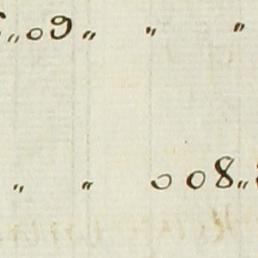 „ 09 „ „ „
„ „ 008 „